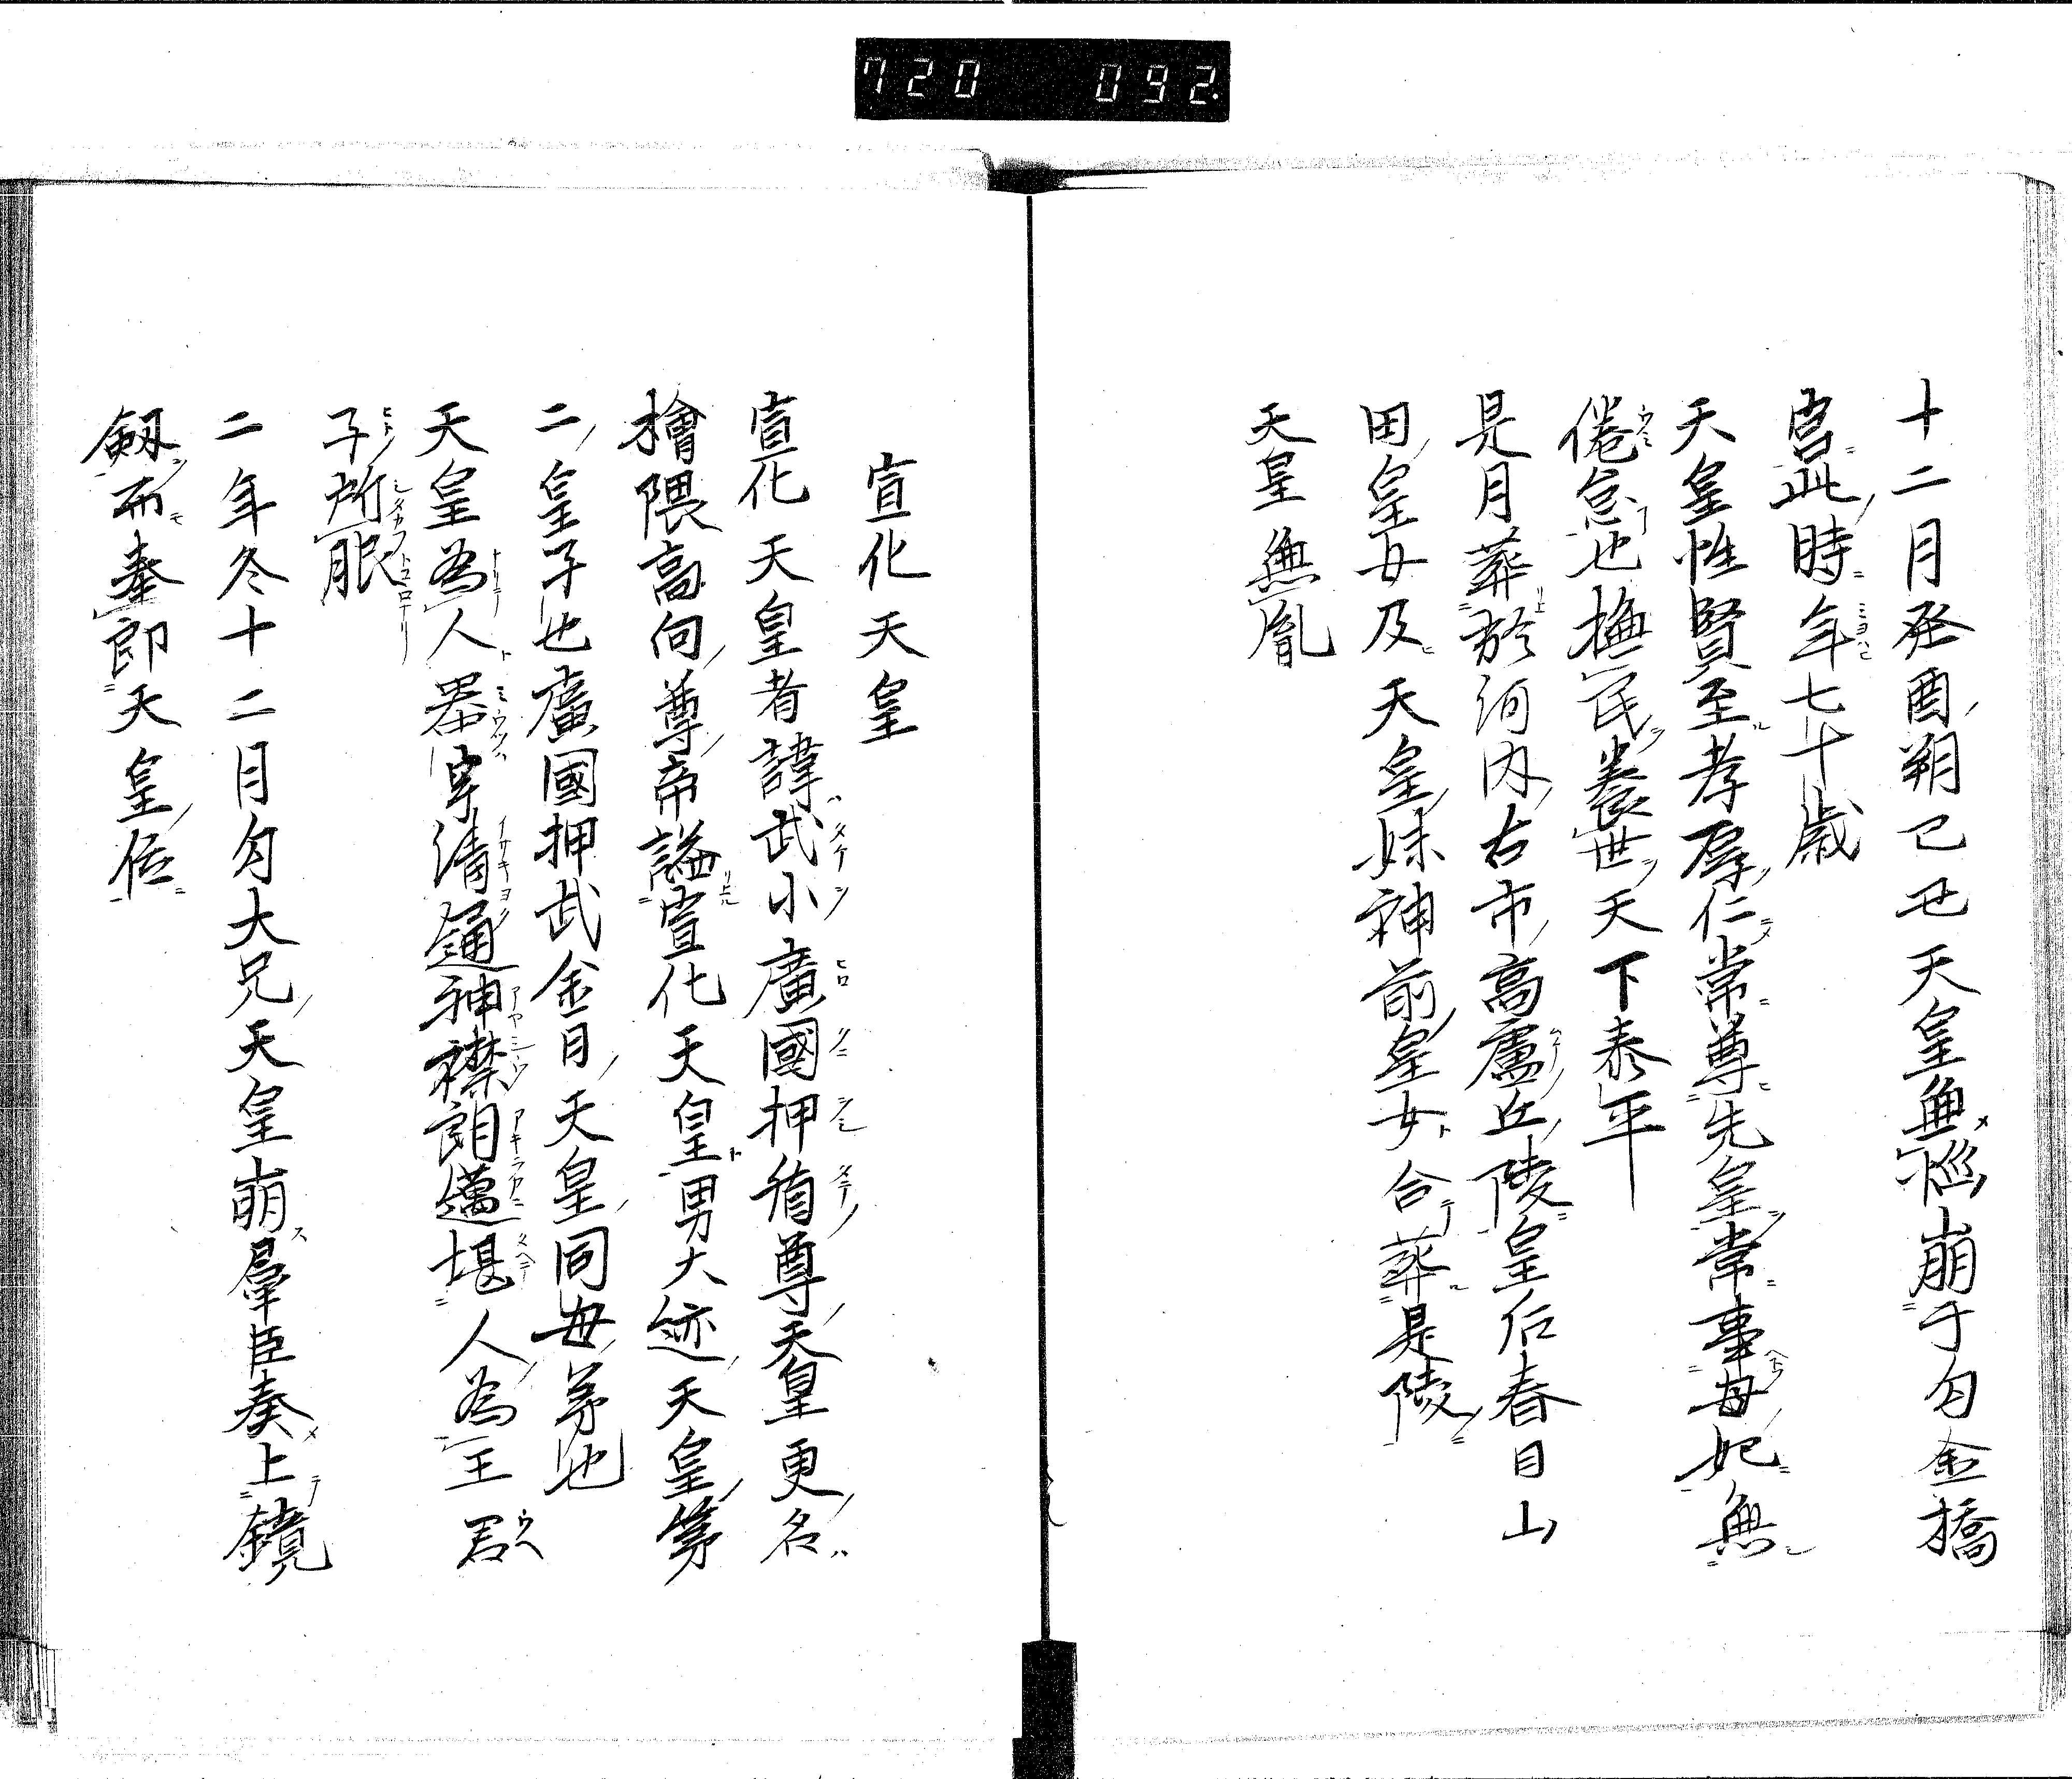 720 092
十二月癸酉朔己丑天皇無極崩于勾金橋
宮此時年七十歳
天皇性賢至孝厚仁常尊先皇常事母妃無
倦怠也撫民養世天下泰平
是月葬於河内古市高廬丘陵皇后春日山
田皇女及天皇妹神前皇女合葬是陵
天皇無胤
宣化天皇
宣化天皇者諱武小廣國押盾尊天皇更名
檜隈高向尊帝謚宣化天皇男大迹天皇第
二皇子也廣國押武金日天皇同母弟也
天皇為人器宇清通神襟朗邁堪人為王君
子所服
二年冬十二月勾大兄天皇崩羣臣奏上鏡
劔而奉即天皇位